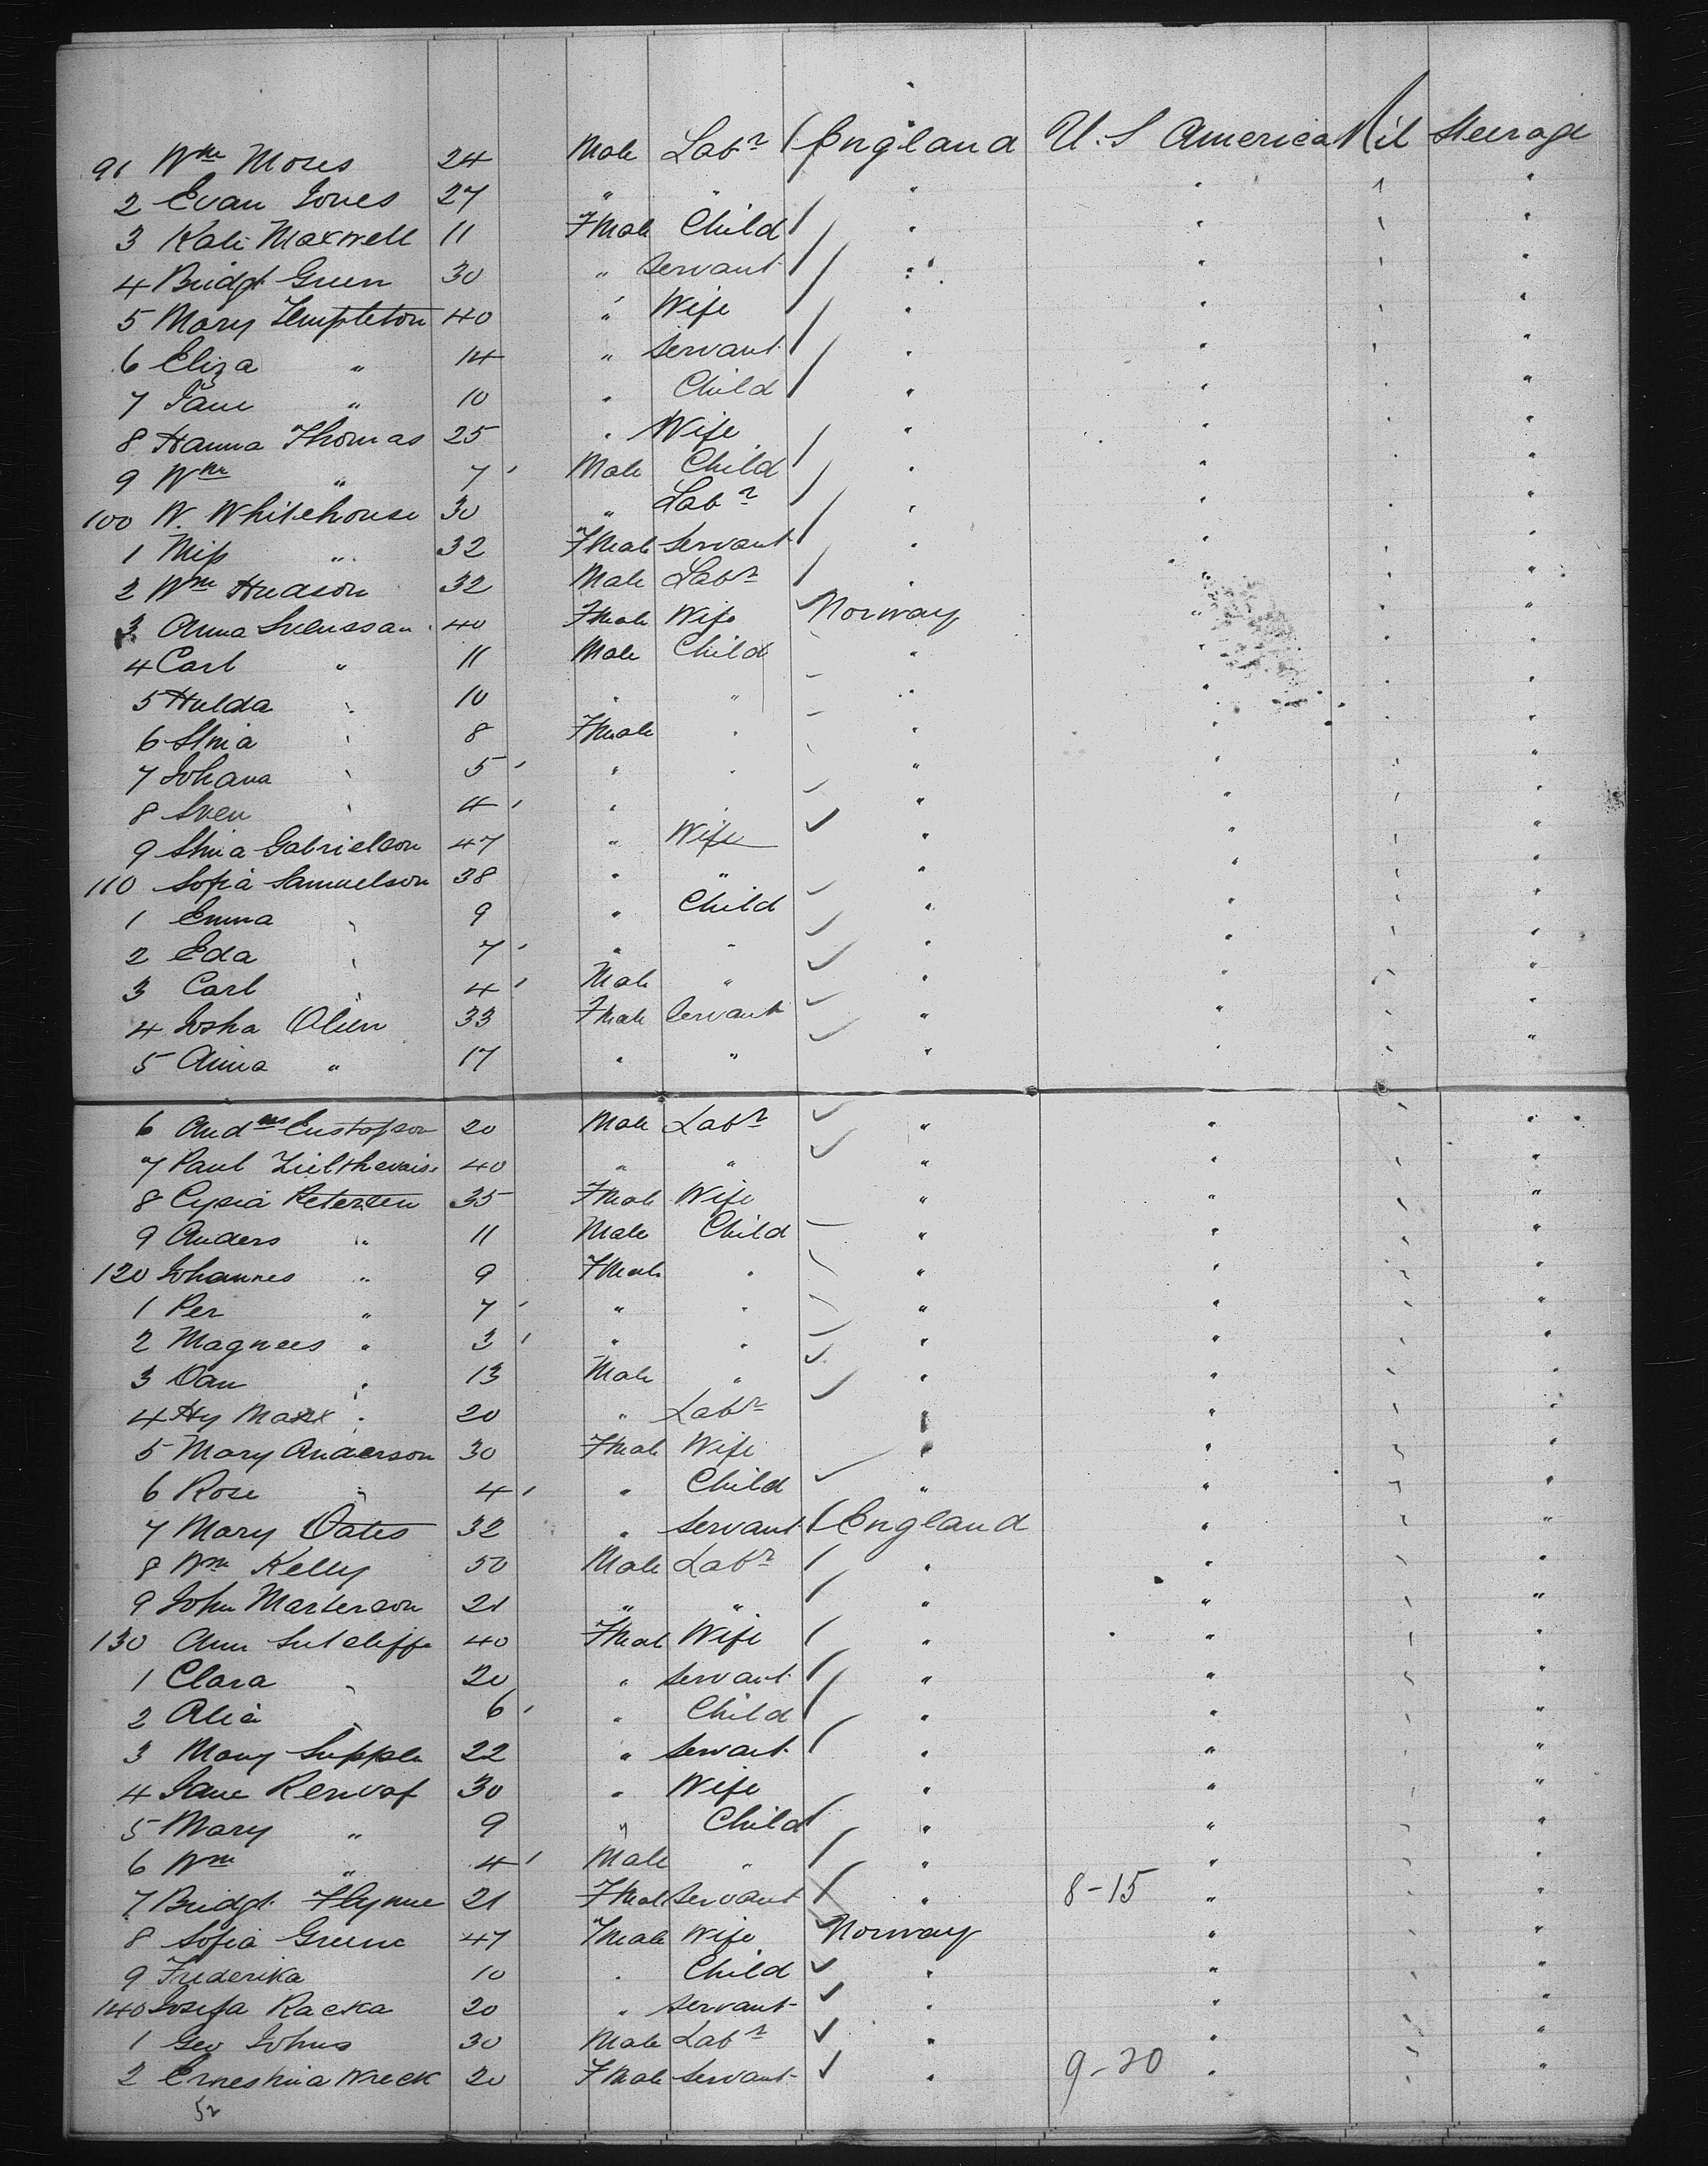 91 Wm Moses 24 Male Labr England U.S America Nil Steerage
2 Evan Jones 27 " " " " " "
3 Kate Maxwell 11 FMale Child " " " "
4 Bridgt Green 30 " Servant " " " "
5 Mary Templeton 40 " Wife " " " "
6 Eliza " 14 " Servant " " " "
7 Jane " 10 " Child " " " "
8 Hanna Thomas 25 " Wife " " " "
9 Wm " 7 Male Child " " " "
100 W. Whitehouse 30 " Labr " " " "
1 Miss " 32 FMale Servant " " " "
2 Wm Hudson 32 Male Labr " " " "
3 Anna Svenssan 40 FMale Wife Norway " " "
4 Carl " 11 Male Child " " " "
5 Hulda " 10 " " " " " "
6 Stina " 8 FMale " " " " "
7 Johana " 5 " " " " " "
8 Sven " 4 " " " " " "
9 Stina Gabrielson 47 " Wife " " " "
110 Sofia Samuelson 38 " " " " " "
1 Emma " 9 " Child " " " "
2 Eda " 7 " " " " " "
3 Carl " 4 Male " " " " "
4 Josha Olsen 33 FMale Servant " " " "
5 Anna " 17 " " " " " "
6 Andas Gustafson 20 Male Labr " " " "
7 Paul 40 " " " " " "
8 Cysia Petersen 35 FMale Wife " " " "
9 Anders " 11 Male Child " " " "
120 Johannes " 9 FMale " " " " "
1 Per " 7 " " " " " "
2 Magnees " 3 " " " " " "
3 Dan " 13 Male " " " " "
4 Hy Marx 20 " Labr " " " "
5 Mary Anderson 30 FMale Wife " " " "
6 Rose " 4 " Child " " " "
7 Mary Oates 32 " Servant England " " "
8 Wm Kelly 50 Male Labr " " " "
9 John Marterson 21 " " " " " "
130 Ann Sutcliffe 40 FMale Wife " " " "
1 Clara " 20 " Servant " " " "
2 Alice " 6 " Child " " " "
3 Mary Supple 22 " Servant " " " "
4 Jane 30 " Wife " " " "
5 Mary " 9 " Child " " " "
6 Wm " 4 Male " " " " "
7 Bridgt Flynne 21 FMale Servant " 8-15 " " "
8 Sofia Greene 47 FMale Wife Norway " " "
9 Frederika 10 " Child " " " "
140 Josefa Racka 20 " Servant " " " "
1 Geo Johns 30 Male Labr " " " "
2 Ernestina Wreck 20 FMale Servant " 9-20 " " "
52